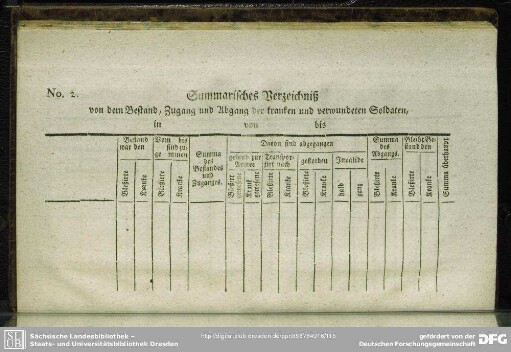 No. 2.
Summarisches Verzeichniß
von dem Bestand, Zugang und Abgang der kranken und verwundeten Soldaten,
in von bis
Bestand war den
Vom bis sind zugenommen
Summa des Bestandes und Zuganges.
Davon sind abgegangen
gesund zur Armee
Transportirt nach
gestorben
Invalide
Summa des Abgangs.
Bleibt Bestand den
Summa überhaupt
Blessirte
Kranke
Blessirte
Kranke
Blessirt gewesene
Krank gewesene
Blessirte
Kranke
Blessirte
Kranke
halb
ganz
Blessirte
Kranke
Blessirte
Kranke
SLUB
Sächsische Landesbibliothek –
Staats- und Universitätsbibliothek Dresden
gefördert von der
Deutschen Forschungsgemeinschaft
DFG